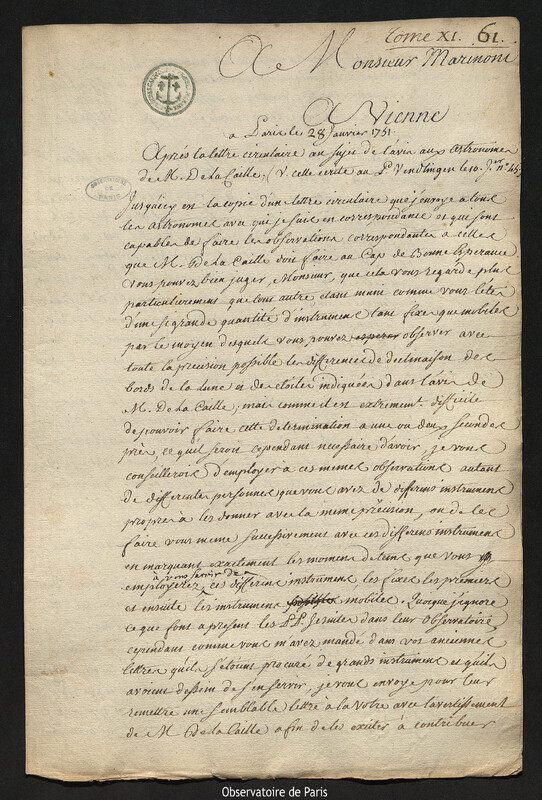 Tome XI. 61.
A Monsieur Marinoni
A Vienne
a Paris le 28 Janvier 1751
Après la lettre circulaire au sujet de l'avis aux Astronomes
de M. De la Caille, (V. celle ecrite au P. Vendlingen le 10. J.er n.° 45)
Jusqu'icy est la copie d'un lettre circulaire que j'envoye a tous
les Astronomes avec qui je suis en correspondance et qui sont
capables de faire les observations correspondantes a celles
que M. De la Caille doit faire au Cap de Bonne Esperance
vous pouvez bien juger, Monsieur, que cela vous regarde plus
particulierement que tout autre etant muni comme vous l'etes
d'une si grande quantité d'instrumens tant fixes que mobiles
par le moyen desquels vous pouvez esperer observer avec
toute la precision possible les differences de declinaison des
bords de la lune et des etoiles indiquées dans l'avis de
M. De la Caille; mais comme il est extremem.t difficile
de pouvoir faire cette determination a une ou deux secondes
près, ce qu'il seroit cependant necessaire d'avoir, je vous
conseillerois d'employer à ces memes observations autant
de differentes personnes que vous avez de differens instrumens
propres à les donner avec la meme précision, ou de les
faire vous meme successivement avec ces differens instrumens
en marquant exactement les momens de tems que vous
employerez à vous servir de ces differens instrumens les fixes les premiers
et ensuite les instrumens mobiles. Quoique j'ignore
ce que font a present les P.P. Jesuites dans leur Observatoire
cependant comme vous m'avez mandé dans vos anciennes
lettres qu'ils s'etoient procuré de grands instrumens et qu'ils
avoient dessein de s'en servir, je vous envoye pour leur
remettre une semblable lettre à la votre avec l'avertissement
de M. De la Caille afin de les exciter à contribuer
OBSERVATOIRE DE PARIS
Observatoire de Paris